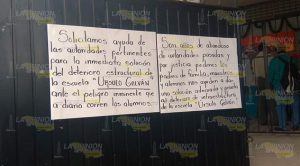 LA OPINIÓN
Solicitamos ayuda de
las autoridades pertinentes
para la inmediata solución
del deterioro estructural de
la escuela "URSULO GALVÁN"
ante el peligro inminente que
a diario corren los alumnos.
Son años de abandono
de autoridades pasadas y
por justicia pedimos los
padres de familia, maestros
y alumnos nos ayuden a dar
una solución adecuada y
al deterioro de
de la escuela "Ursulo Galván